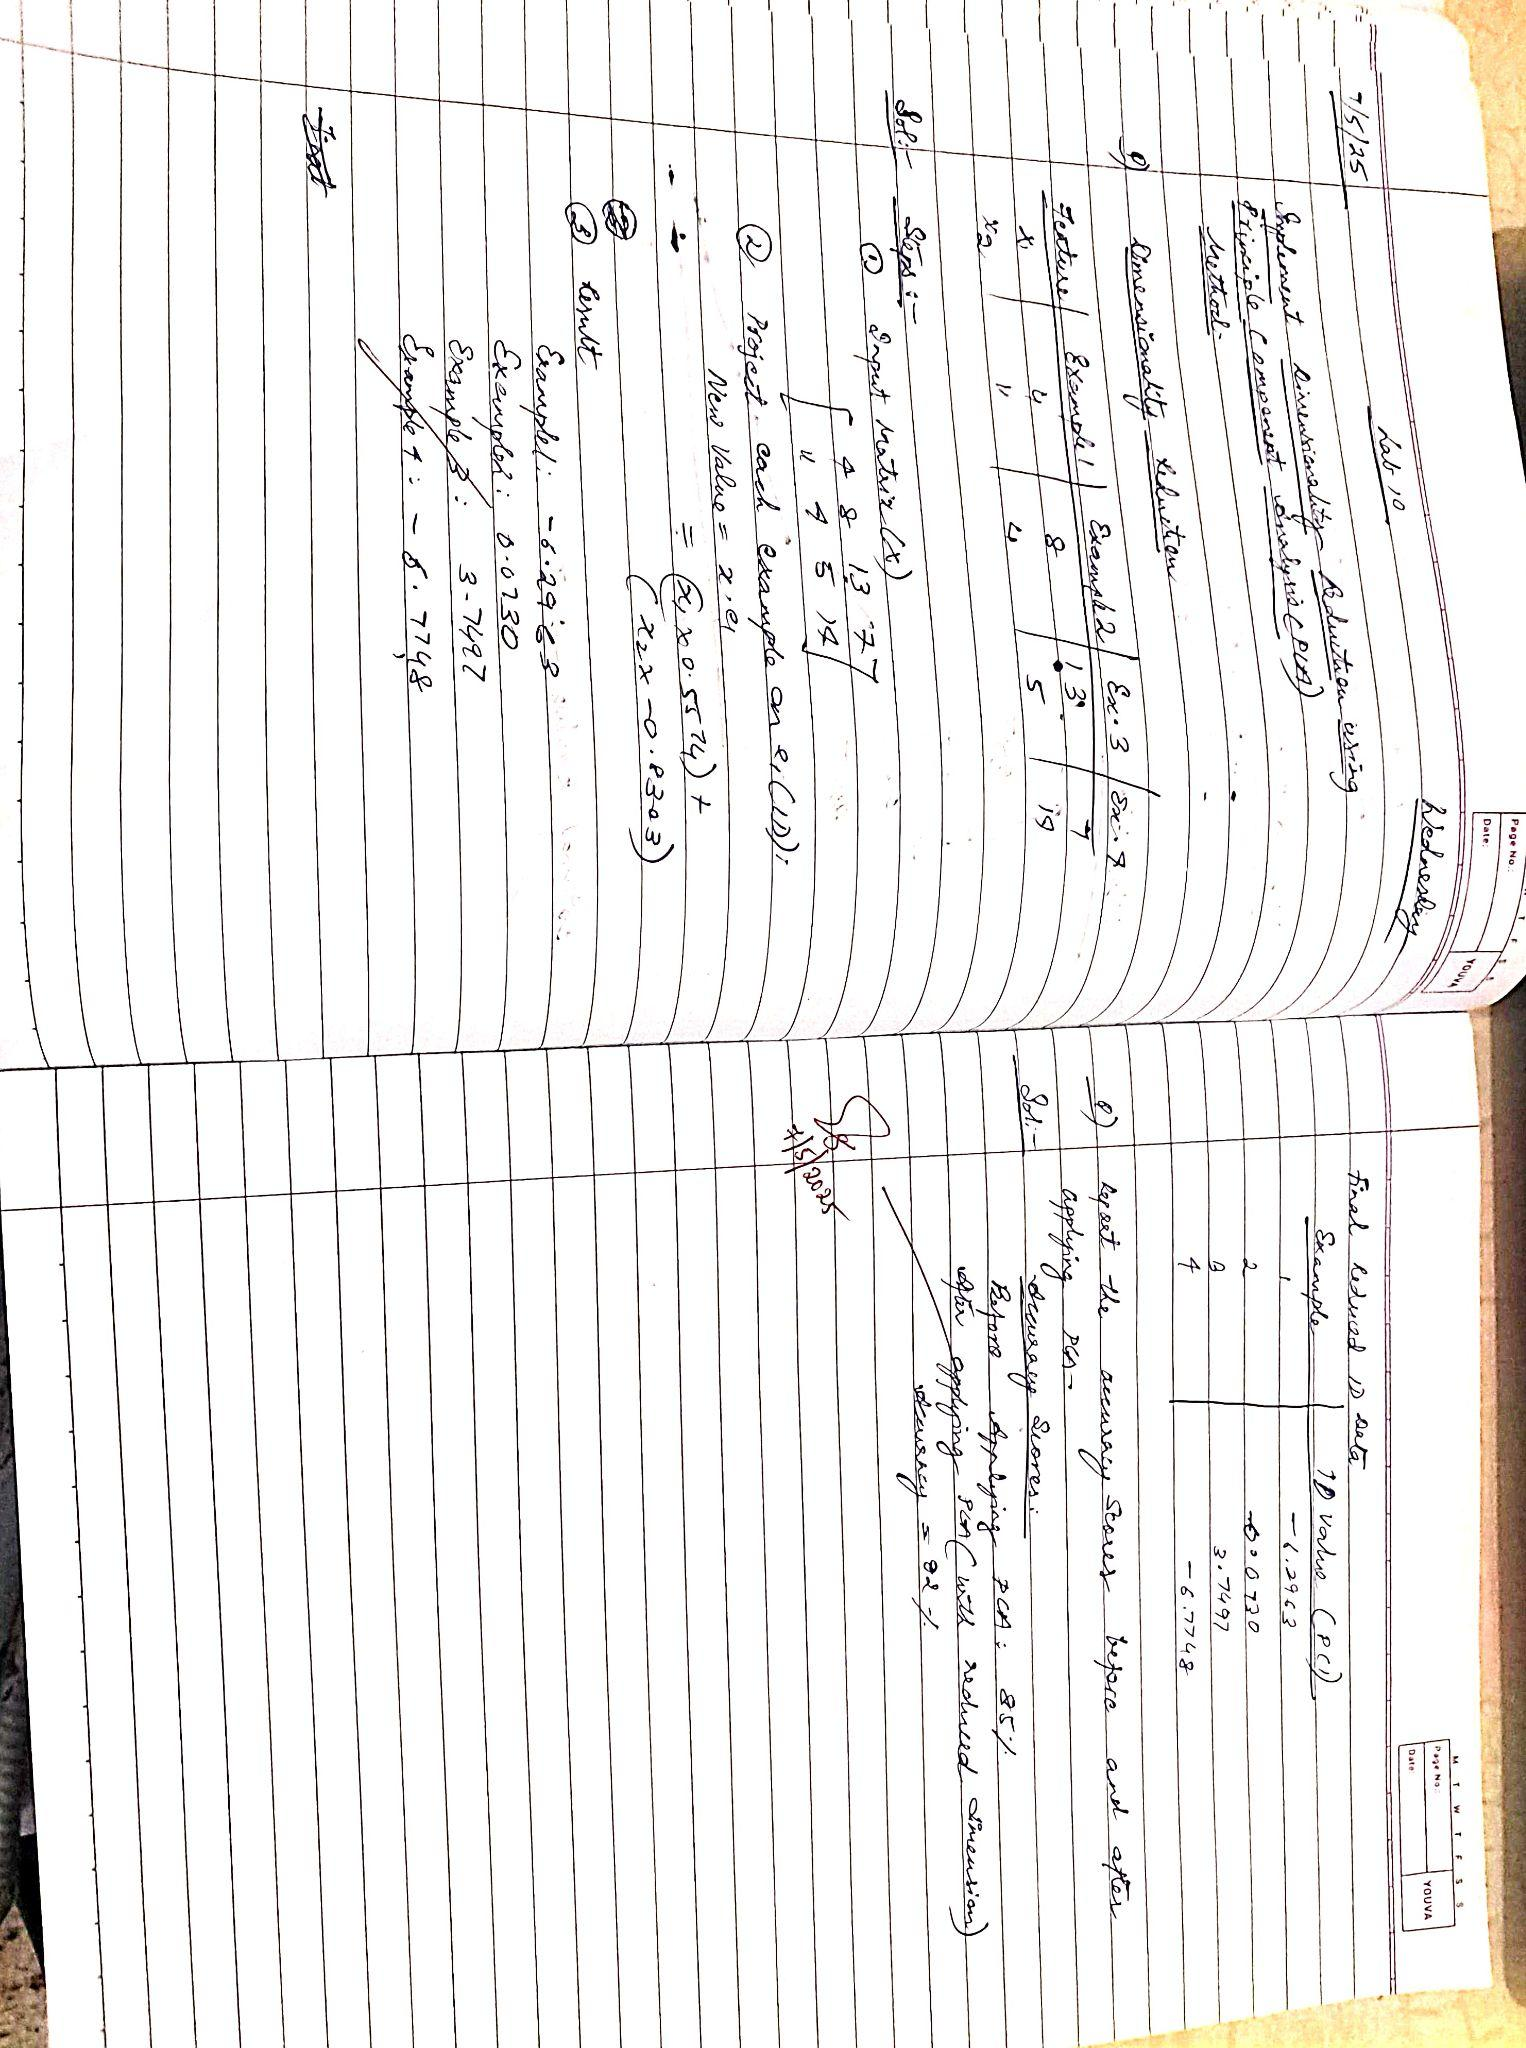 T F S S
Page No.:
Date:
YOUVA
Wednesday
7/5/25
Lab 10
Implement Dimensionality Reduction using
Principle Component Analysis (PCA)
Method.
Q) Dimensionality Reduction
Feature Example 1 Example 2 Ex. 3 Ex. 4
x1 4 8 13 7
x2 11 4 5 14
Sol:- Steps:-
① Input Matrix (X)
4 8 13 7
11 4 5 14
② Project each example on e1 (1D):
New Value = x.e1
= (x1 x 0.5574) +
(x2 x -0.8303)
③ Result
Example1: -6.2963
Example2: 0.0730
Example 3: 3.7497
Example 4: -8.7748
M T W T F S S
Page No.:
Date:
YOUVA
Final Reduced 1D Data
Example 1D Value (PC1)
1 -6.2963
2 0.0730
3 3.7497
4 -6.7748
Q) Report the accuracy scores before and after
applying PCA-
Sol:- Accuracy Scores:
Before Applying PCA: 85%
After applying PCA (with reduced dimension)
Accuracy = 82%
7/5/2025